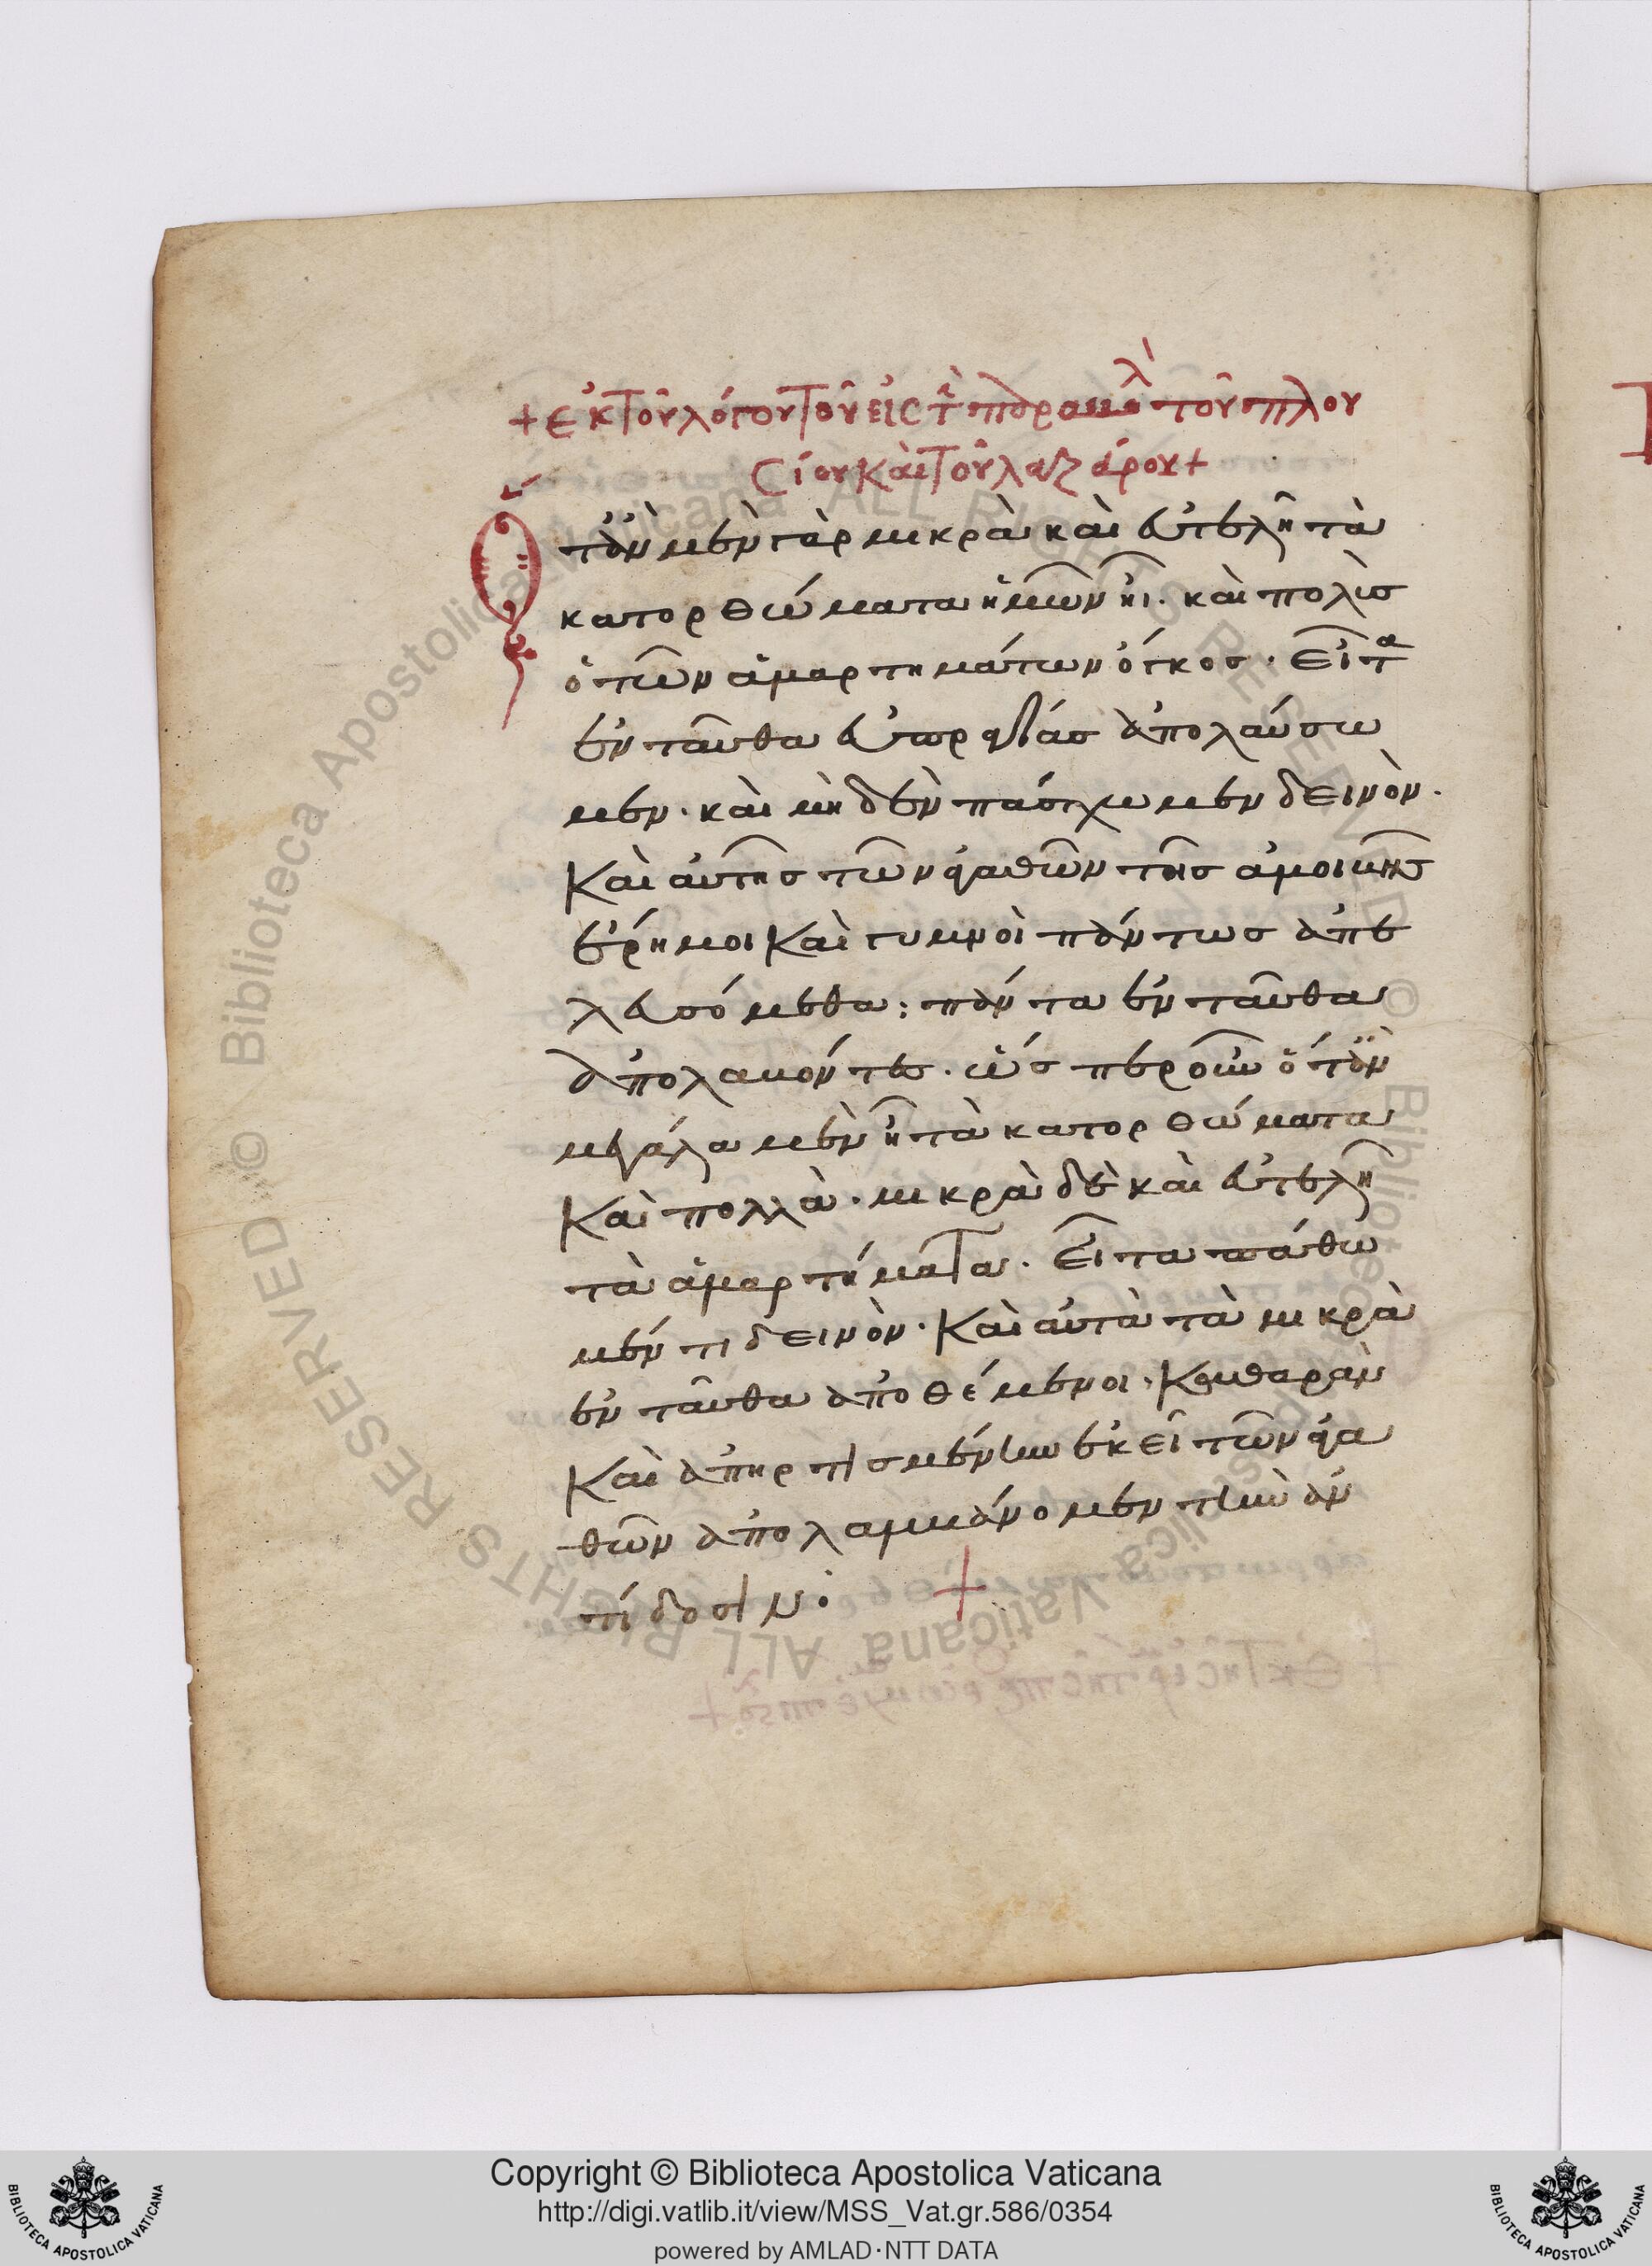 + ἐκ τοῦ λόγου τοῦ εἰς τ̂ παραβολ τοῦ πλου
σίου καὶ τοῦ λαζάρου +
Ὅταν μὲν γὰρ μικρὰ καὶ εὐτελῆ τὰ
κατορθώματα ἡμῶν ἦι. καὶ πολὺς
ὁ τῶν ἁμαρτημάτων ὄγκος. εἶτα
ἐνταῦθα εὐπραγίας ἀπολαύσω
μεν. καὶ μηδὲν πάσχωμεν δεινὸν.
καὶ αὐτῆς τῶν ἀγαθῶν τῆς ἀμοιβῆς
ἔρημοι καὶ γυμνοὶ πάντως ἀπε
λευσόμεθα; πάντα ἐνταῦθα
ἀπολαβόντες. ὥσπερ οὖν ὅταν
μεγάλα μὲν ἦ τὰ κατορθώματα
καὶ πολλὰ. μικρὰ δὲ καὶ εὐτελῆ
τὰ ἁμαρτήματα. εἶτα πάθω
μέν τι δεινὸν. καὶ αὐτὰ τὰ μικρὰ
ἐνταῦθα ἀποθέμενοι. καθαρὰν
καὶ ἀπηρτισμένην ἐκεῖ τῶν ἀγα
θῶν ἀπολαμβάνομεν τὴν ἀν
τίδοσιν. +
Copyright © Biblioteca Apostolica Vaticana
http://digi.vatlib.it/view/MSS_Vat.gr.586/0354
powered by AMLAD·NTT DATA
BIBLIOTECA APOSTOLICA VATICANA
BIBLIOTECA APOSTOLICA VATICANA
© Biblioteca Apostolica Vaticana ALL RIGHTS RESERVED
© Biblioteca Apostolica Vaticana ALL RIGHTS RESERVED